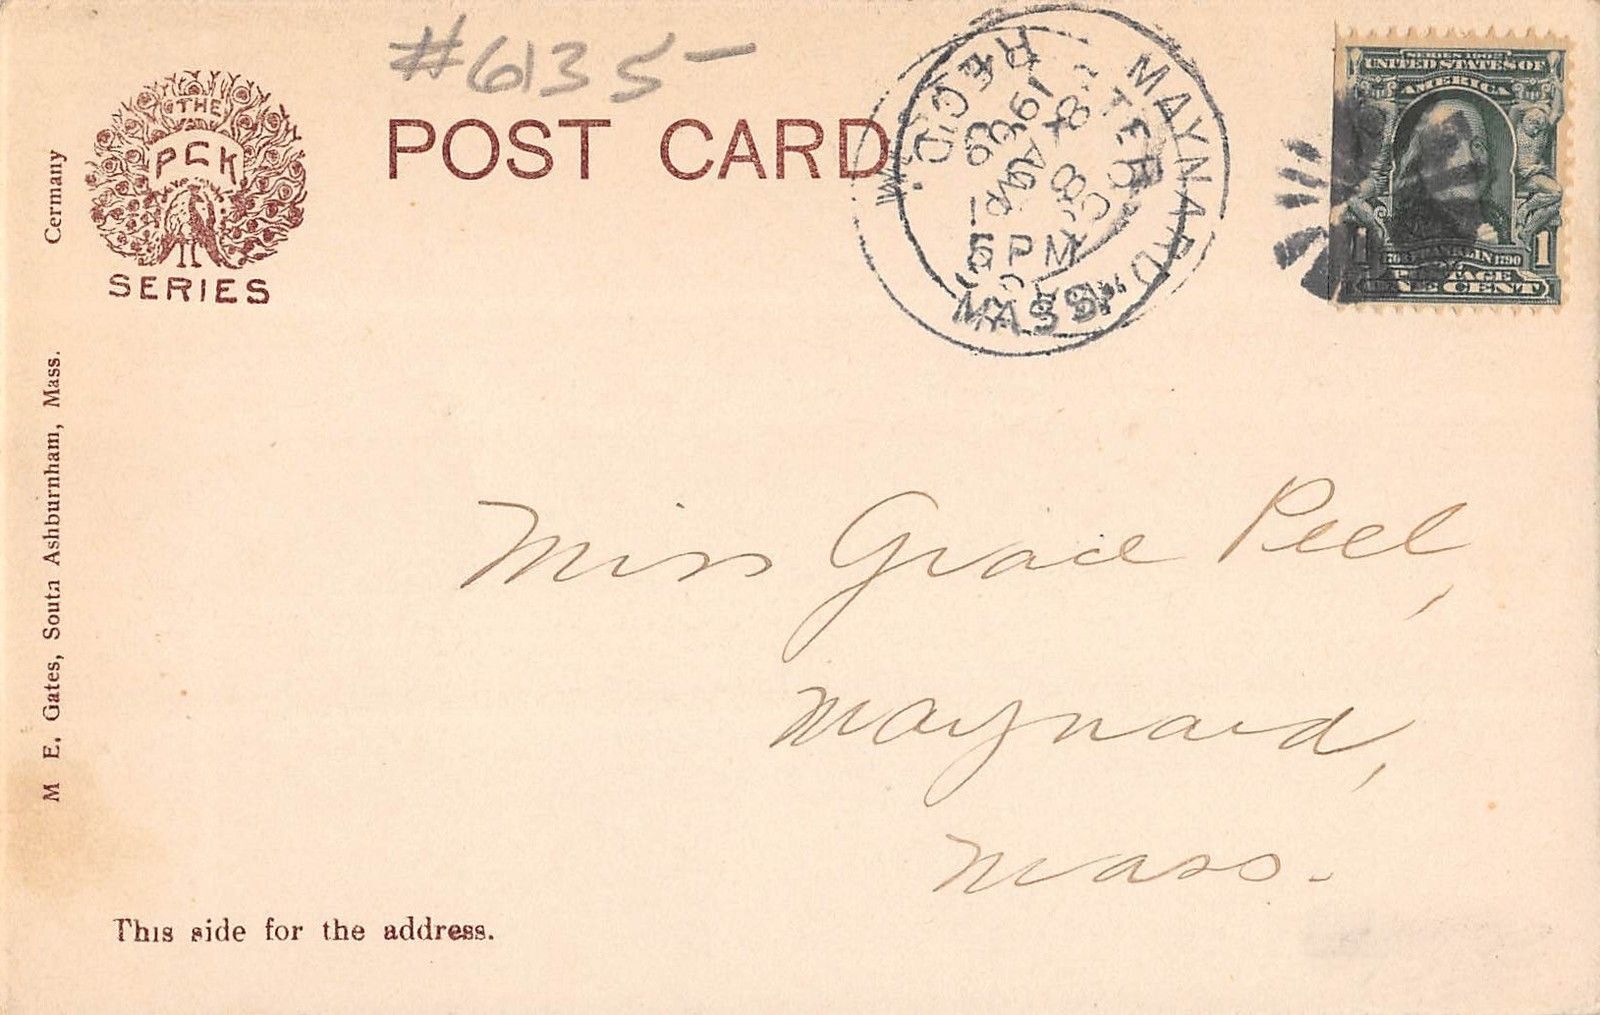 #6135-
THE
PCK
SERIES
POST CARD
MAYNARD
MASS.
REC'D.
5 PM
SERIES 1902
UNITED STATES OF
AMERICA
1 FRANKLIN 1790 1
POSTAGE
ONE CENT
Cermany
M E. Gates, South Ashburnham, Mass.
Miss Grace Peel,
Maynard,
Mass.
This side for the address.